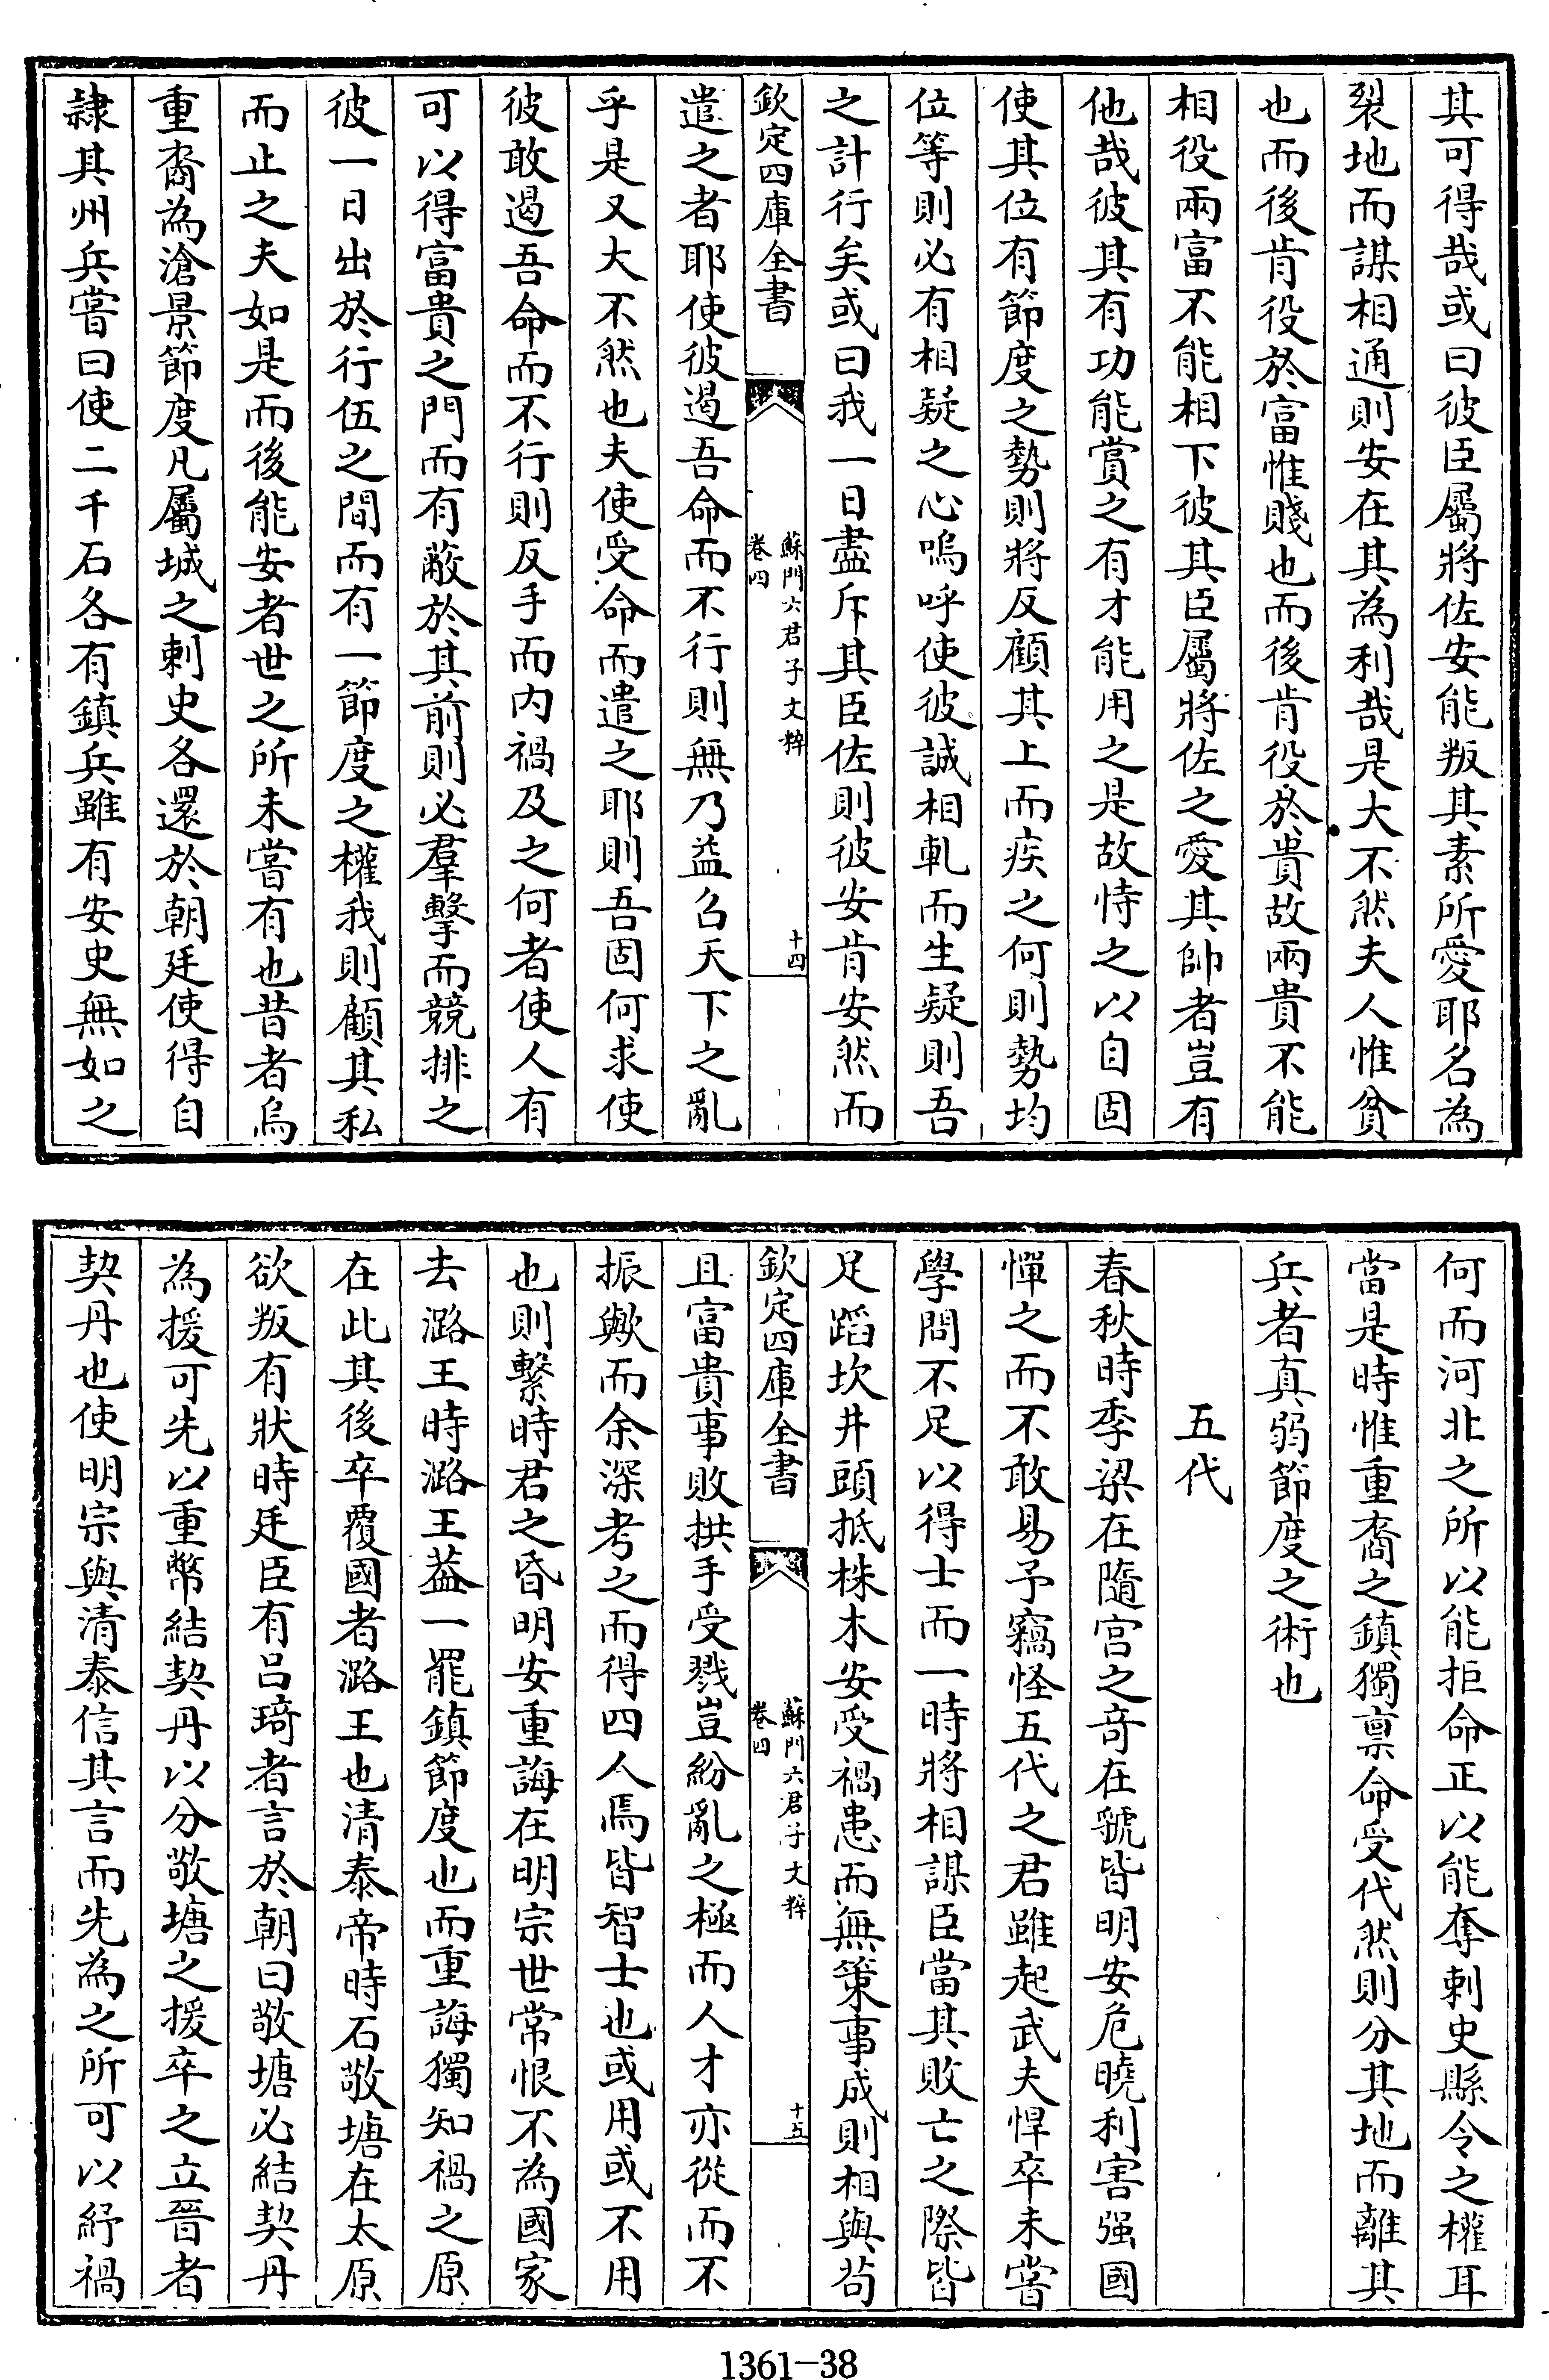 其可得哉或曰彼臣屬將佐安能叛其素所愛耶名為
裂地而謀相通則安在其為利哉是大不然夫人惟貧
也而後肯役於富惟賤也而後肯役於貴故兩貴不能
相役兩富不能相下彼其臣屬將佐之愛其帥者豈有
他哉彼其有功能賞之有才能用之是故恃之以自固
使其位有節度之勢則將反顧其上而疾之何則勢均
位等則必有相疑之心嗚呼使彼誠相軋而生疑則吾
之計行矣或曰我一日盡斥其臣佐則彼安肯安然而
欽定四庫全書
蘇門六君子文粹
卷四
十四
遣之者耶使彼遏吾命而不行則無乃益召天下之亂
乎是又大不然也夫使受命而遣之耶則吾固何求使
彼敢遏吾命而不行則反手而内禍及之何者使人有
可以得富貴之門而有蔽於其前則必羣擊而競排之
彼一日出於行伍之間而有一節度之權我則顧其私
而止之夫如是而後能安者世之所未嘗有也昔者烏
重裔為滄景節度凡屬城之剌史各還於朝廷使得自
隷其州兵嘗曰使二千石各有鎮兵雖有安史無如之
何而河北之所以能拒命正以能奪剌史縣令之權耳
當是時惟重裔之鎮獨禀命受代然則分其地而離其
兵者真弱節度之術也
五代
春秋時季梁在隨宫之奇在虢皆明安危曉利害强國
憚之而不敢易予竊怪五代之君雖起武夫悍卒未嘗
學問不足以得士而一時將相謀臣當其敗亡之際皆
足蹈坎井頭抵株木安受禍患而無策事成則相與苟
欽定四庫全書
蘇門六君子文粹
卷四
十五
且富貴事敗拱手受戮豈紛亂之極而人才亦從而不
振歟而余深考之而得四人焉皆智士也或用或不用
也則繫時君之昏明安重誨在明宗世常恨不為國家
去潞王時潞王葢一罷鎮節度也而重誨獨知禍之原
在此其後卒覆國者潞王也清泰帝時石敬塘在太原
欲叛有狀時廷臣有吕琦者言於朝曰敬塘必結契丹
為援可先以重幣結契丹以分敬塘之援卒之立晉者
契丹也使明宗與清泰信其言而先為之所可以紓禍
1361-38